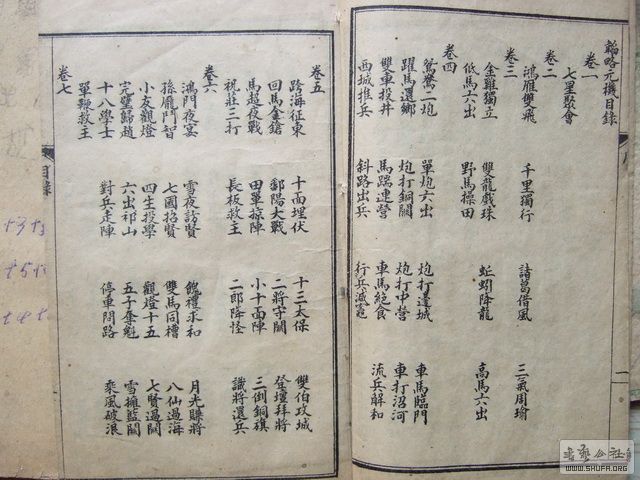 韜略元機目錄
卷一
七星聚會
卷二
鴻雁雙飛 千里獨行 諸葛借風 三氣周瑜
卷三
金雞獨立 雙龍戲珠 蚯蚓降龍 高馬六出
低馬六出 野馬操田
卷四
鴛鴦一炮 單炮六出 炮打邊城 車馬臨門
躍馬還鄉 炮打銅關 炮打中營 車打沼河
雙車投井 馬踹連營 車馬絕食 流兵解和
西城推兵 斜路出兵 行兵減竈
一
卷五
跨海征東 十面埋伏 十三太保 雙伯攻城
回馬金鎗 鄱陽大戰 二將守關 登壇拜將
馬超夜戰 田單掠陣 小十面陣 三倒銅旗
祝莊三打 長板救主 二郎降怪 識將選兵
卷六
鴻門夜宴 雪夜訪賢 餽禮求和 月光賺將
孫龐鬥智 七國招賢 雙馬同槽 八仙過海
小友觀燈 四生投學 觀燈十五 七賢過關
完璧歸趙 六出祁山 五子奪魁 雪擁藍關
十八學士 對兵走陣 停車問路 乘風破浪
單鞭救主
卷七
目錄
WWW.SHUFA.ORG